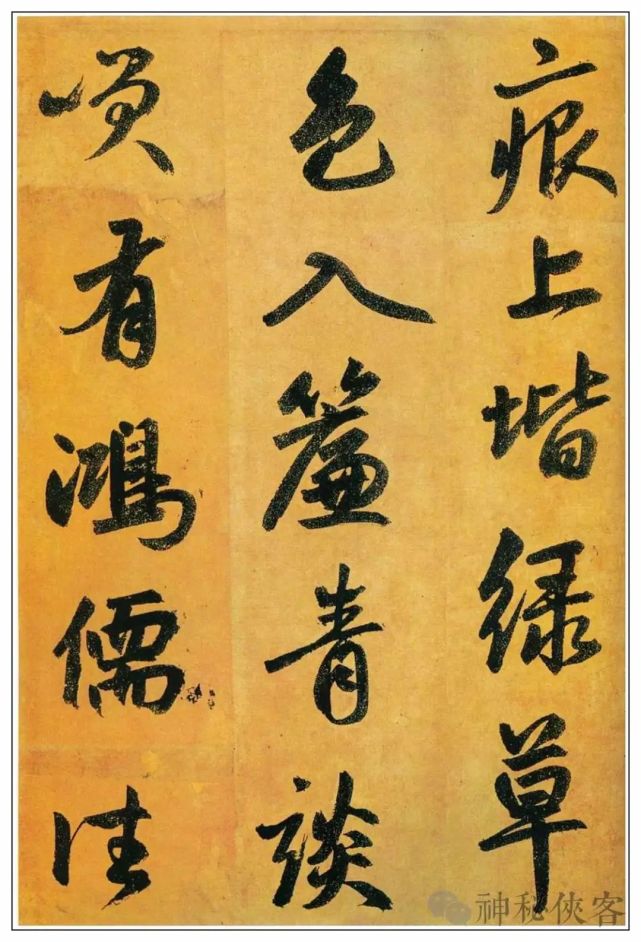 痕上堦緑草
色入簾青談
咲有鴻儒往
神秘俠客